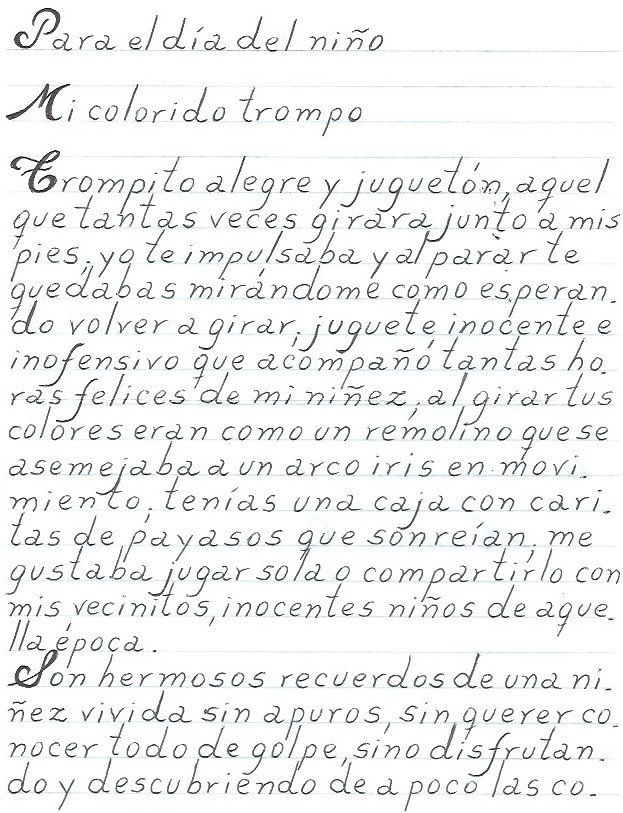 Para el día del niño
Mi colorido trompo
Trompito alegre y juguetón, aquel
que tantas veces girara junto a mis
pies; yo te impulsaba y al parar te
quedabas mirándome como esperan.
do volver a girar; juguete inocente e
inofensivo que acompañó tantas ho.
ras felices de mi niñez; al girar tus
colores eran como un remolino que se
asemejaba a un arco iris en movi.
miento; tenías una caja con cari.
tas de payasos que sonreían; me
gustaba jugar sola o compartirlo con
mis vecinitos, inocentes niños de aque.
lla época.
Son hermosos recuerdos de una ni.
ñez vivida sin apuros, sin querer co.
nocer todo de golpe, sino disfrutan.
do y descubriendo de a poco las co.